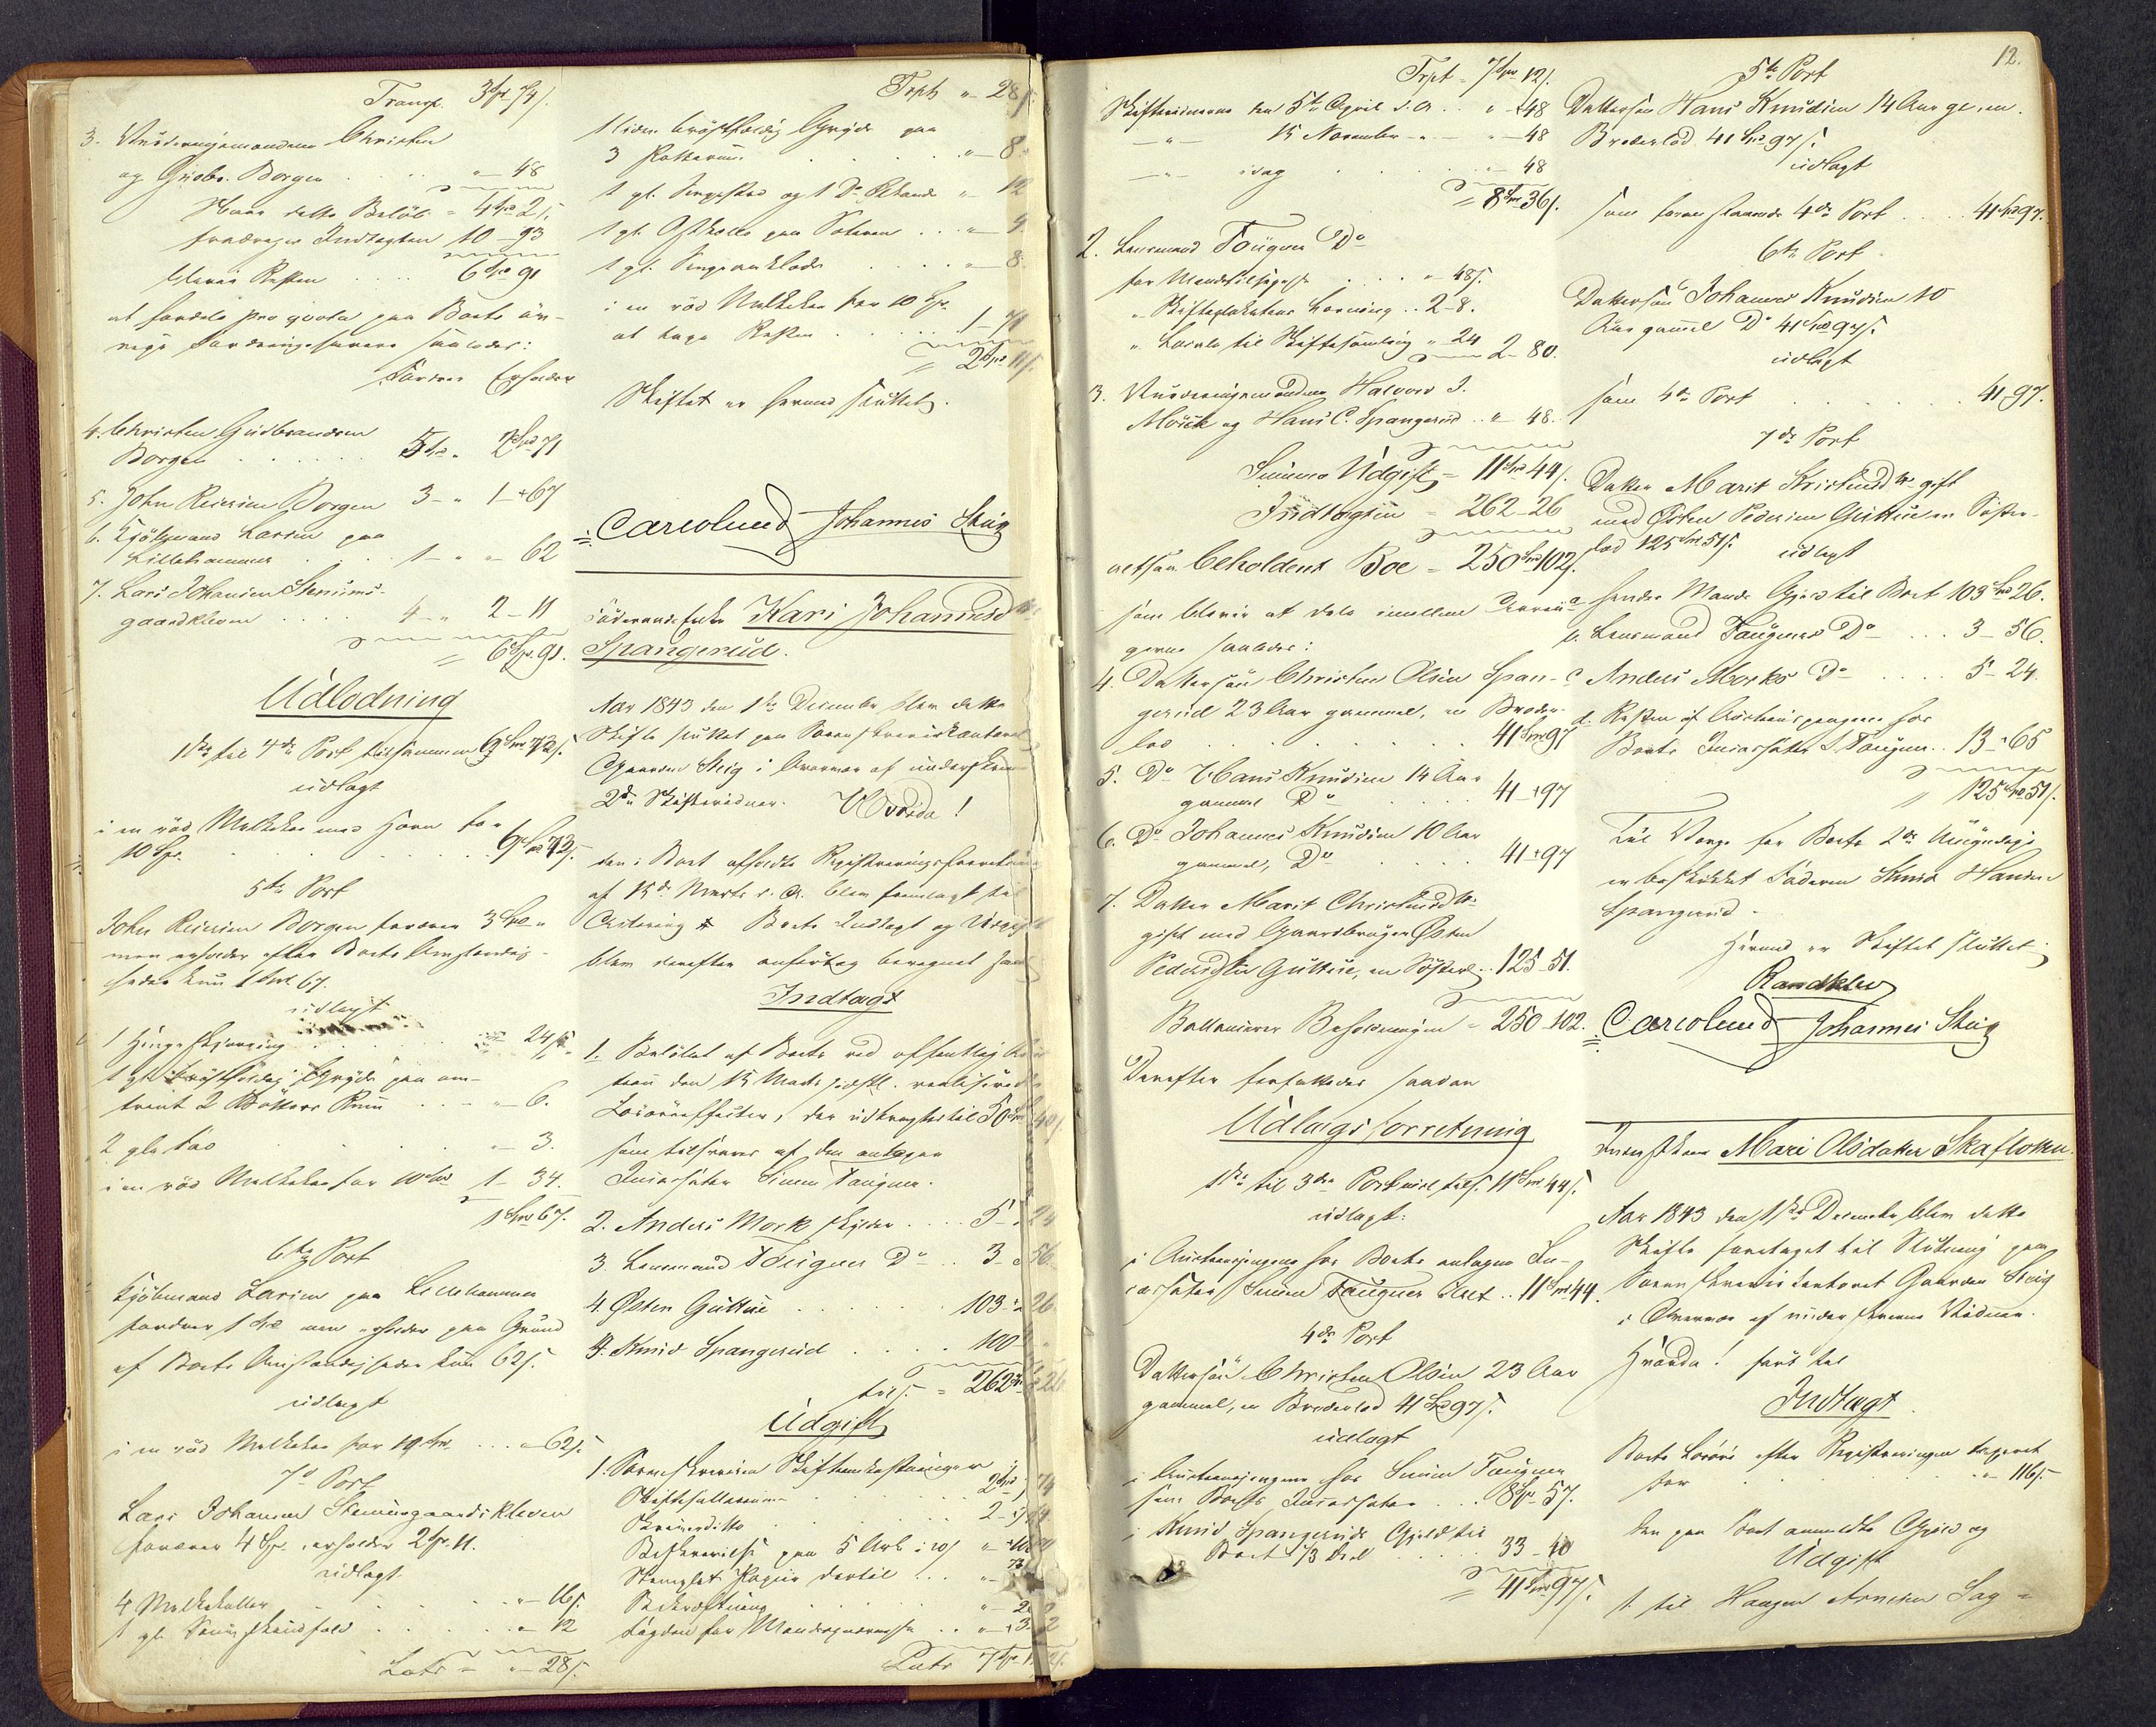 Transp. 3 Spd 74 s.
3. Vurderingsmændene Christen
og Gudbr. Borgen . . . " - 48
Naar dette Beløb = 4 Spd 2 s.
fradrages Indtægten 10 - 93
bliver Resten . . . 6 Spd 91
at fordele pro qvota paa Boets øv-
rige Fordringshavere saaledes:
Fordrer Erholder
4. Christen Gudbrandsen
Borgen . . . . . 5 Spd " 2 Spd 71
5. John Reiersen Borgen 3 - " 1 - 67
6. Kjøbmand Larsen paa
Lillehammer . . 1 - " " - 62
7. Lars Johansen Stenums-
gaardkleven . . . . 4 - " 2 - 11
= 6 Spd 91.
Udlodning
1ste til 4de Post tilsammen
udlagt
i en rød Melkekoe med Horn for
10 Spd.
5te Post
John Reiersen Borgen fordrer 3 Spd "
men erholder efter Boets Omstændig-
heder kun 1 Spd 67.
udlagt
1 . . . . . 24 s.
1 gl. brøstfældig Gryde paa om-
trent 2 Potters Rum . . . " - 6.
2 gle Fad . . . . " - 3.
i en rød Melkekoe for 10 Spd 1 - 34.
1 Spd 67.
6te Post
Kjøbmand Larsen paa Lillehammer
fordrer 1 Spd men erholder paa Grund
af Boets Omstændigheder kun 62 s.
udlagt
i en rød Melkekoe for 10 Spd . . . " - 62 s.
7de Post
Lars Johansen Stenumsgaardskleven
fordrer 4 Spd. erholder 2 Spd. 11.
udlagt
4 Melkekoller . . . " - 16 s.
1 gl. Skindfeld . . . . " - 12
Lats = " - 28 s.
Trpt " - 28 s.
1 liden brøstfældig Gryde paa
3 Potterum . . . . " - 8.
1 gl. Sengested og 1 Do " - 12
1 gl. . . . " - 9
1 gl. Sengeomklæde . . . " - 8.
i en rød Melkekoe for 10 Spd.
at tage Resten . . . . 1 - 71
= 2 Spd 11 s.
Skiftet er hermed sluttet.
Carlolund Johannes Steig
Føderaadsenke Kari Johannesd.
Spangerud.
Aar 1843 den 1ste December blev dette
Skifte sluttet paa Sorenskrivercontoret
Gaarden Steig i Overvær af underskrevne
2de Skiftevidner. Hvorda!
den i Boet afholdte Registreringsforretning
af 15de Marts d. A. blev fremlagt til
Boets Indtægt og Udgift
blev derefter anført og beregnet saaledes
Indtægt
1. Beløbet af Boets ved offentlig Auc-
tion den 15 Marts realiserede
Løsøreeffecter, der udbragtes til 50 Spd
som tilsvares af den antagne
Incassator Simen Taugner.
2. Anders Mork skylder . . . . 5 - 24
3. Lensmand Taugner Do . . 3 - 56
4. Østen Guttue . . . . . 103 - 26
4. Knud Spangerud . . . . 100 -
tils. = 262 Spd 26
Udgift
1. Sorenskriveren Skifteomkostninger
Skiftesallarium . . . . . 2 Spd
Skriver ditto . . . . 2 -
Beskrivelse paa 5 Ark
Stemplet Papiir dertil . . . " -
Bekræftning . . . . " -
Lats 7 Spd
Trpt = 7 Spd 12 s.
Skiftevidnerne den 5te April d. A. . . " - 48
- " - 15 November - " - " - 48
- " - idag . . . . . " - 48
= 8 Spd 36 s.
2. Lensmand Taugner Do
for Mandtilsigelse . . . . " - 48 s.
" Skifteplakatens Læsning . . 2 - 8.
" Locale til Skiftesamling " 24 2 - 80.
3. Vurderingsmændene Halvor J.
Morck og Hans C. Spangerud . . " - 48.
Summa Udgift = 11 Spd 44 s.
Indtægten = 262 - 26
altsaa beholdent Boe = 250 Spd 102 s.
som bliver at dele imellem Arvin-
gerne saaledes:
4. Dattersøn Christen Olsen Span-
gerud 23 Aar gammel, en Broder-
lod . . . . . . 41 Spd 97
5. Do Hans Knudsen 14 Aar
gammel Do . . . . 41 - 97
6. Do Johannes Knudsen 10 Aar
gammel, Do . . . . 41 - 97
7. Datter Marit Christensd tr
gift med Gaardbruger Østen
Pedersen Guttue, en Søsterl. . . 125 - 51.
Ballancerer Beholdningen = 250 - 102.
Derefter forfattedes saadan
Udlægsforretning
1ste til 3die Post med tils. 11 Spd 44 s.
udlagt:
i Auctionspengene hos Boets antagne In-
cassator Simen Taugner . . 11 Spd 44.
4de Post
Dattersøn Christen Olsen 23 Aar
gammel, en Broderlod 41 Spd 97 s.
udlagt
i Auctionspengene hos Simen Taugner
som Boets Incassator . . . 8 Spd 57.
i Knud Spangeruds Gjeld til
Boet 1/3 Deel . . . . . 33 - 40
= 41 Spd 97 s.
12.
5te Post
Dattersøn Hans Knudsen 14 Aar gl., en
Broderlod 41 Spd 97 s.
udlagt
som foranstaaende 4de Post . . . . 41 Spd 97.
6te Post
Dattersøn Johannes Knudsen 10
Aar gammel Do 41 Spd 97 s.
udlagt
som 4de Post . . . . . 41 97.
7de Post
Datter Marit Kristensd tr gift
med Østen Pedersen Guttue en Søster-
lod 125 Spd 51 s. udlagt
a. hendes Mands Gjeld til Boet 103 Spd 26.
b. Lensmand Taugners Do . . . 3 - 56.
c. Anders Morks Do . . . . 5 - 24.
d. Resten af Auctionspengene hos
Boets Incassator S. Taugner . . 13 - 65
= 125 Spd 51 s.
Til Værge for Boets 2de Umyndige
er beskikket Faderen Knud Hansen
Spangerud.
Hermed er Skiftet sluttet.
Randklev
Carlolund Johannes Steig
Mari Olsdatter Skaflotten.
Aar 1843 den 1ste December blev dette
Skifte foretaget til Slutning paa
Sorenskrivercontoret Gaarden Steig
i Overvær af underskrevne Vidner.
Hvorda! ført til
Indtægt
Boets Løsøre efter Registreringen taxeret
for . . . . . . . " - 116 s.
Den paa Boet anmeldte Gjeld og
Udgift
1. til Haagen Arnesen Sag =